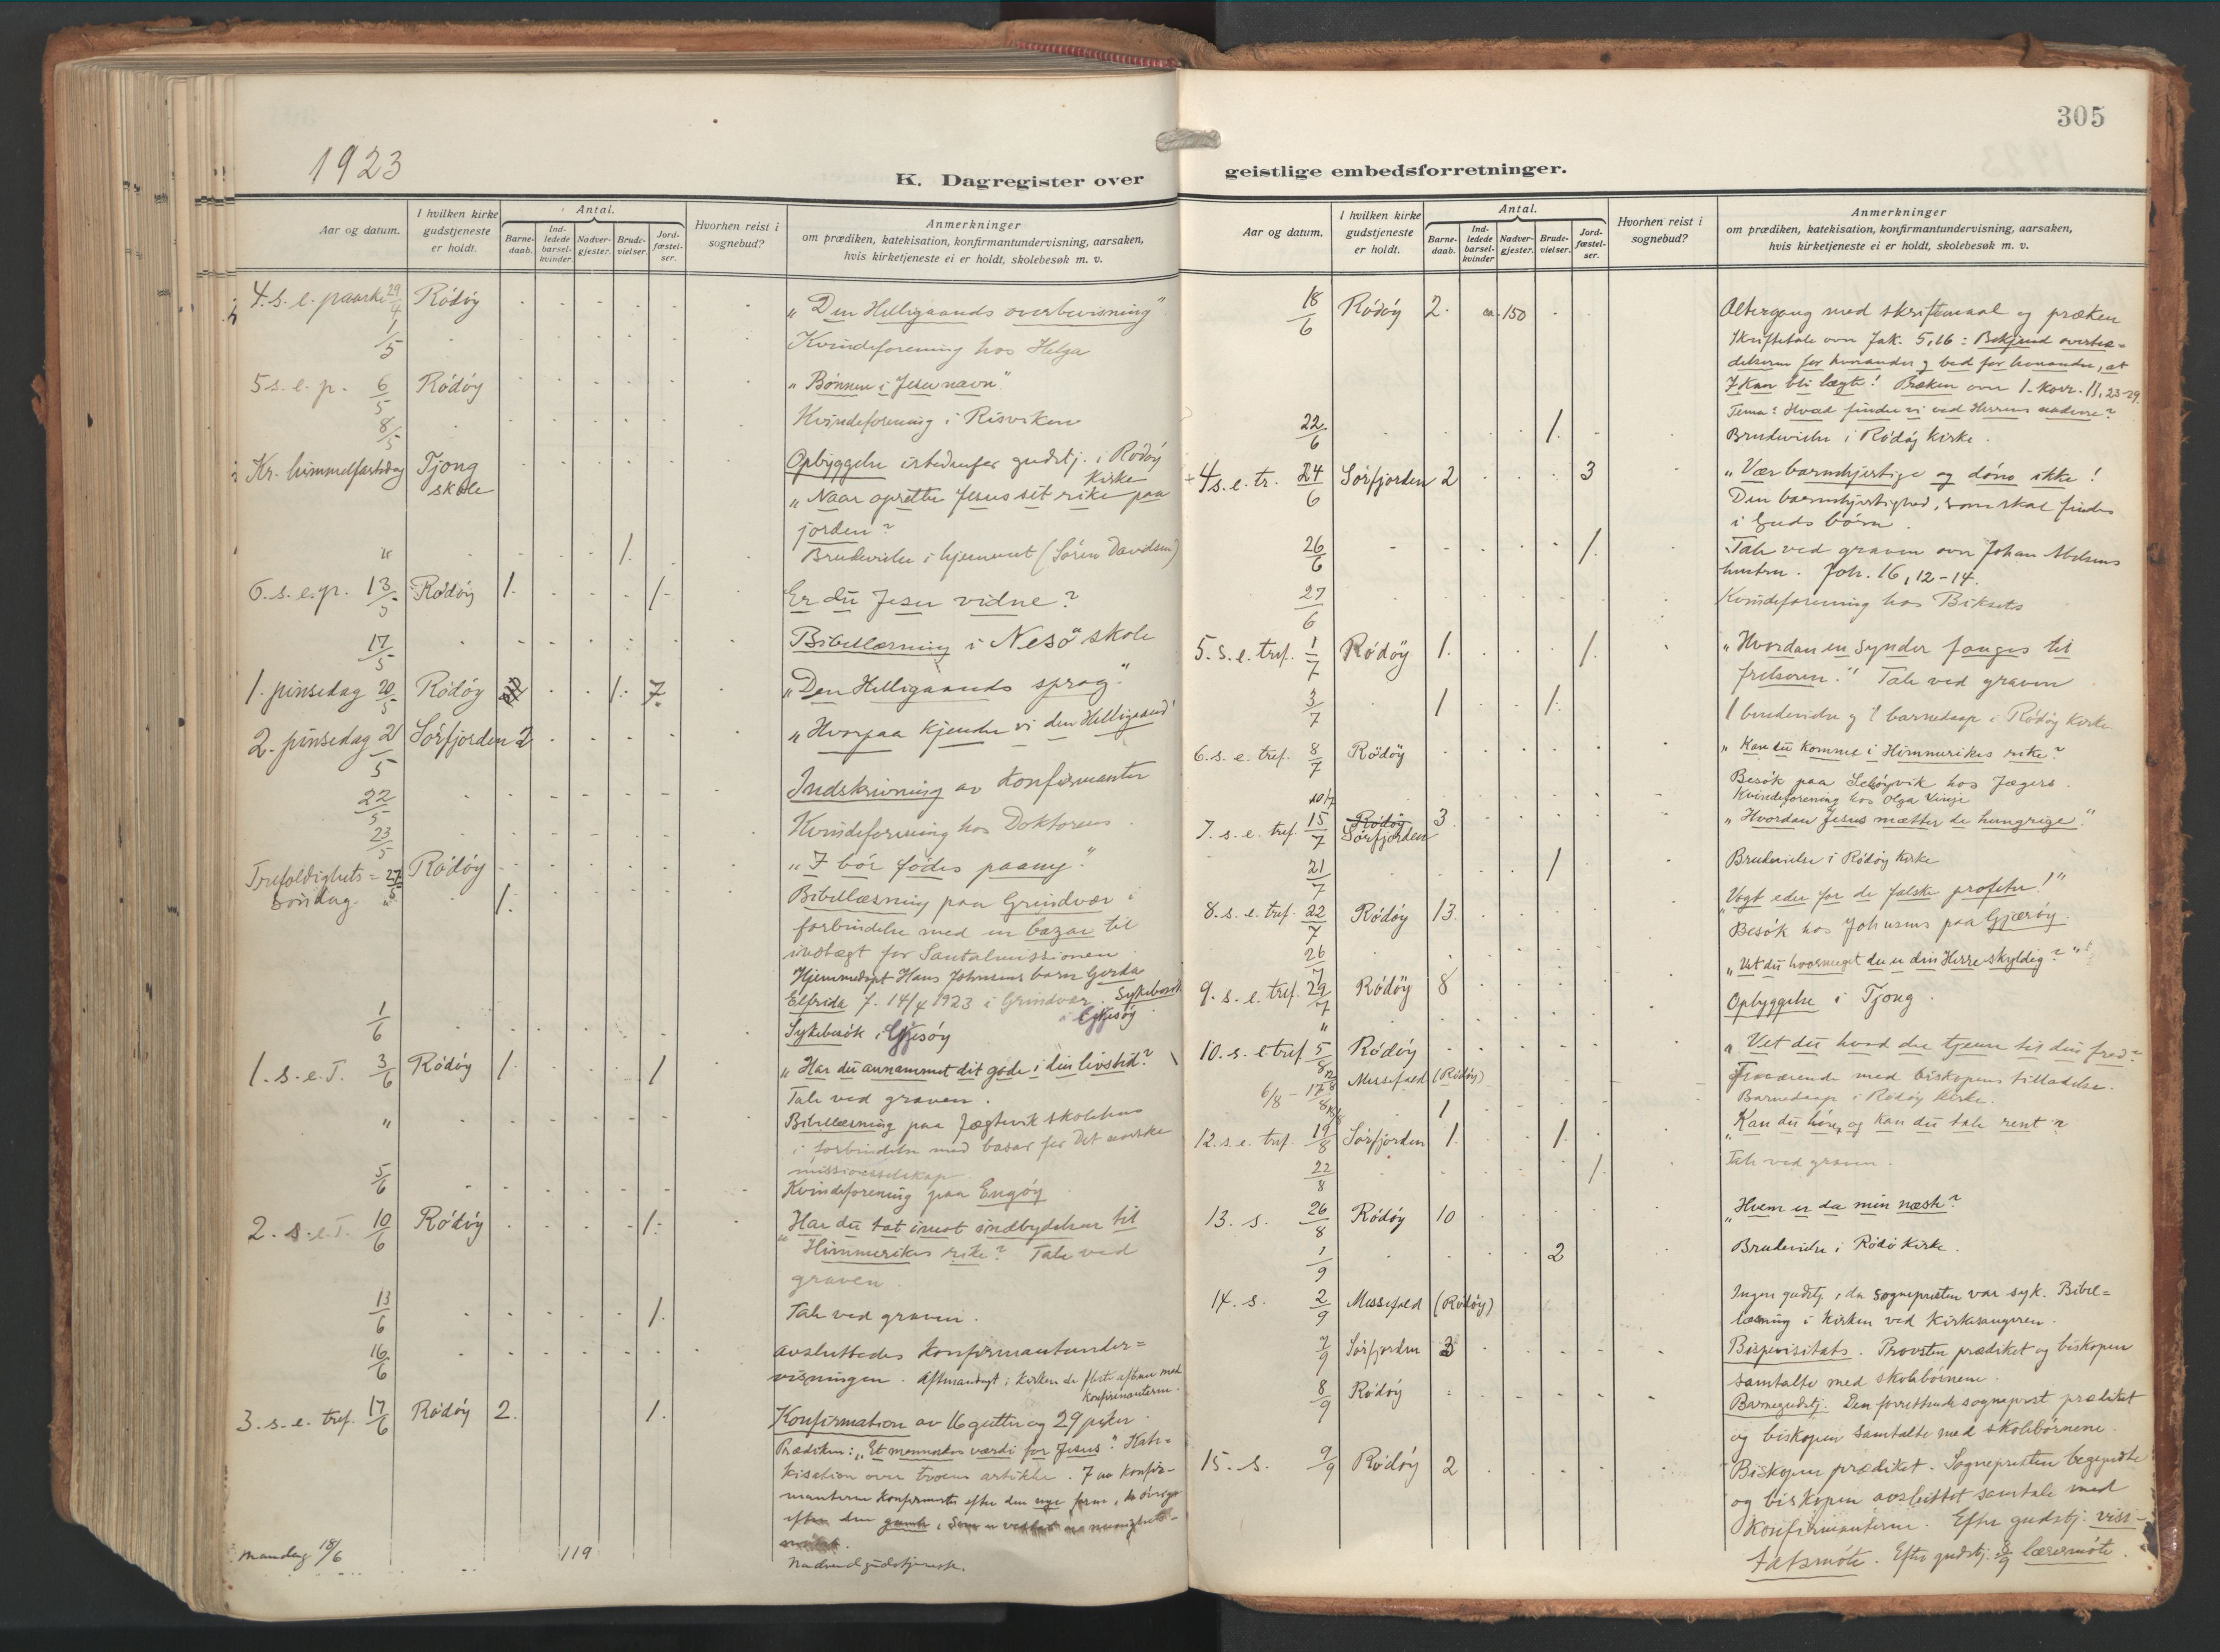 1923
K. Dagregister over
Aar og datum.
I hvilken kirke gudstjeneste er holdt.
Antal.
Barne-daab.
Ind-ledede barsel-kvinder.
Nadver-gjester.
Brude-vielser.
Jord-fæstel-ser.
Hvorhen reist i sognebud?
Anmerkninger
om prædiken, katekisation, konfirmantundervisning, aarsaken,
hvis kirketjeneste ei er holdt, skolebesøk m. v.
4. s. e. paaske 29/4 Rödöy "Den Helligaands overbevisning"
1/5 Kvindeforening hos Helga
5 s. e. p. 6/5 Rödöy "Bönnen i Jesu navn".
8/5 Kvindeforening i Risviken
Kr. himmelfartsdag Tjong skole Opbyggelse istedenfor gudstj. i Rödöy Kirke
"Naar opretter Jesus sit rike paa
jorden?
" 1. Brudevielse i hjemmet (Sören Davidsen)
6. s. e. p. 13/5 Rödöy 1. 1. Er du Jesu vidne?
17/5 Bibellæsning i Nesö skole
1. pinsedag 20/5 Rödöy 1. 7. "Den Helligaands sprog."
2. pinsedag 21/5 Sörfjorden 2 "Hvorpaa kjender vi den Helligaand"
22/5 Indskrivning av konfirmanter
23/5 Kvindeforening hos Doktorens
Trefoldighets= 27/5 Rödöy "I bör födes paany."
söndag " 1. Bibellæsning paa Grindvær i
forbindelse med en bazar til
indtægt for Santalmissionen
Hjemmedöpt Hans Johnsens barn Gerda
Elfrida f. 14/4 1923 i Grindvær. Sykebesök
1/6 Sykebesök i
1. s. e. T. 3/6 Rödöy 1. 1 "Har du annammet dit gode i din livstid?
Tale ved graven.
" Bibellæsning paa Jægtvik skolehus
i forbindelse med basar for Det norske
missionsselskap.
5/6 Kvindeforening paa Engöy
2. s. e. T. 10/6 Rödöy 1. Har du tat imot indbydelsen til
"Himmerikes rike? Tale ved
graven.
13/6 1. Tale ved graven.
16/6 avsluttedes konfirmantunder=
visningen.
konfirmanterne.
3. s. e. tref. 17/6 Rödöy 2. 1. Konfirmation av 16 gutter og 29 piker.
Prædiken: "Et menneskes værdi for Jesus". Kate=
kisation over troens artikler. 7 av konfir=
manterne konfirmertes efter den nye form, de övrige
efter den gamle,
mandag 18/6 119 Nadverdgudstjeneste.
305
geistlige embedsforretninger.
Aar og datum.
I hvilken kirke gudstjeneste er holdt.
Antal.
Barne-daab.
Ind-ledede barsel-kvinder
Nadver-gjester.
Brude-vielser.
Jord-fæstel-ser.
Hvorhen reist i sognebud?
Anmerkninger
om prædiken, katekisation, konfirmantundervisning, aarsaken,
hvis kirketjeneste ei er holdt, skolebesøk m. v.
18/6 Rödöy 2. ca. 150 Altergang med skriftemaal og præken
Skriftetale over Jak. 5,16: Bekjend overtræ=
delserne for hverandre og bed for hverandre, at
I kan bli lægte! Præken over 1. Kor. 11, 23-29.
Tema: Hvad finder vi ved Herrens nadver?
22/6 1. Brudevielse i Rödöy Kirke.
4 s. e. tr. 24/6 Sörfjorden 2 3 "Vær barmhjertige og döm ikke!
Den barmhjertighed, som skal findes
i Guds börn.
26/6 1. Tale ved graven over Johan Abelsens
hustru. Joh. 16, 12-14.
27/6 Kvindeforening hos
5. s. e. tref. 1/7 Rödöy 1. 1. "Hvordan en synder fanges til
frelseren." Tale ved graven
3/7 1 1. 1 brudevielse og 1 barnedaap i Rödöy Kirke
6. s. e. tref. 8/7 Rödöy "Kan du komme i Himmerikes rike?
Besök paa Selöyvik hos Jægers.
10/7 Kvindeforening hos Olga Vinje
7. s. e. tref. 15/7 Rödöy Sörfjorden 3. "Hvordan Jesus mætter de hungrige."
21/7 1 Brudevielse i Rödöy Kirke
8. s. e. tref. 22/7 Rödöy 13. "Vogt eder for de falske profeter!"
26/7 Besök hos Johnsens paa Gjæröy.
9. s. e. tref. 29/7 Rödöy 8 "Vet du hvormeget du er din Herre skyldig?"
" Opbyggelse i Tjong.
10. s. e. tref 5/8 Rödöy "Vet du hvad der tjener til din fred?
6/8 - 17/8 Messefald (Rödöy) Fraværende med biskopens tilladelse.
1 Barnedaap i Rödöy Kirke.
12. s. e. tref. 19/8 Sörfjorden 1. 1. "Kan du höre, og kan du tale rent?
22/8 1. Tale ved graven.
13. s. 26/8 Rödöy 10 "Hvem er da min næste?
1/9 2 Brudevielse i Rödö Kirke.
14. s. 2/9 Messefald (Rödöy) Ingen gudstj., da sognepresten var syk. Bibel=
læsning i Kirken ved Kirkesangeren.
7/9 Sörfjorden 3 Bispevisitats. Provsten prædiket og biskopen
samtalte med skolebörnene.
8/9 Rödöy Barnegudstj. Den forrettende sogneprest prædiket
og biskopen samtalte med skolebörnene.
15. s. 9/9 Rödöy 2 Biskopen prædiket. Sognepresten begyndte
og biskopen avsluttet samtale med
Konfirmanterne. Efter gudstj. visi-
tatsmöte. Efter gudstj. 8/9 lærermöte.